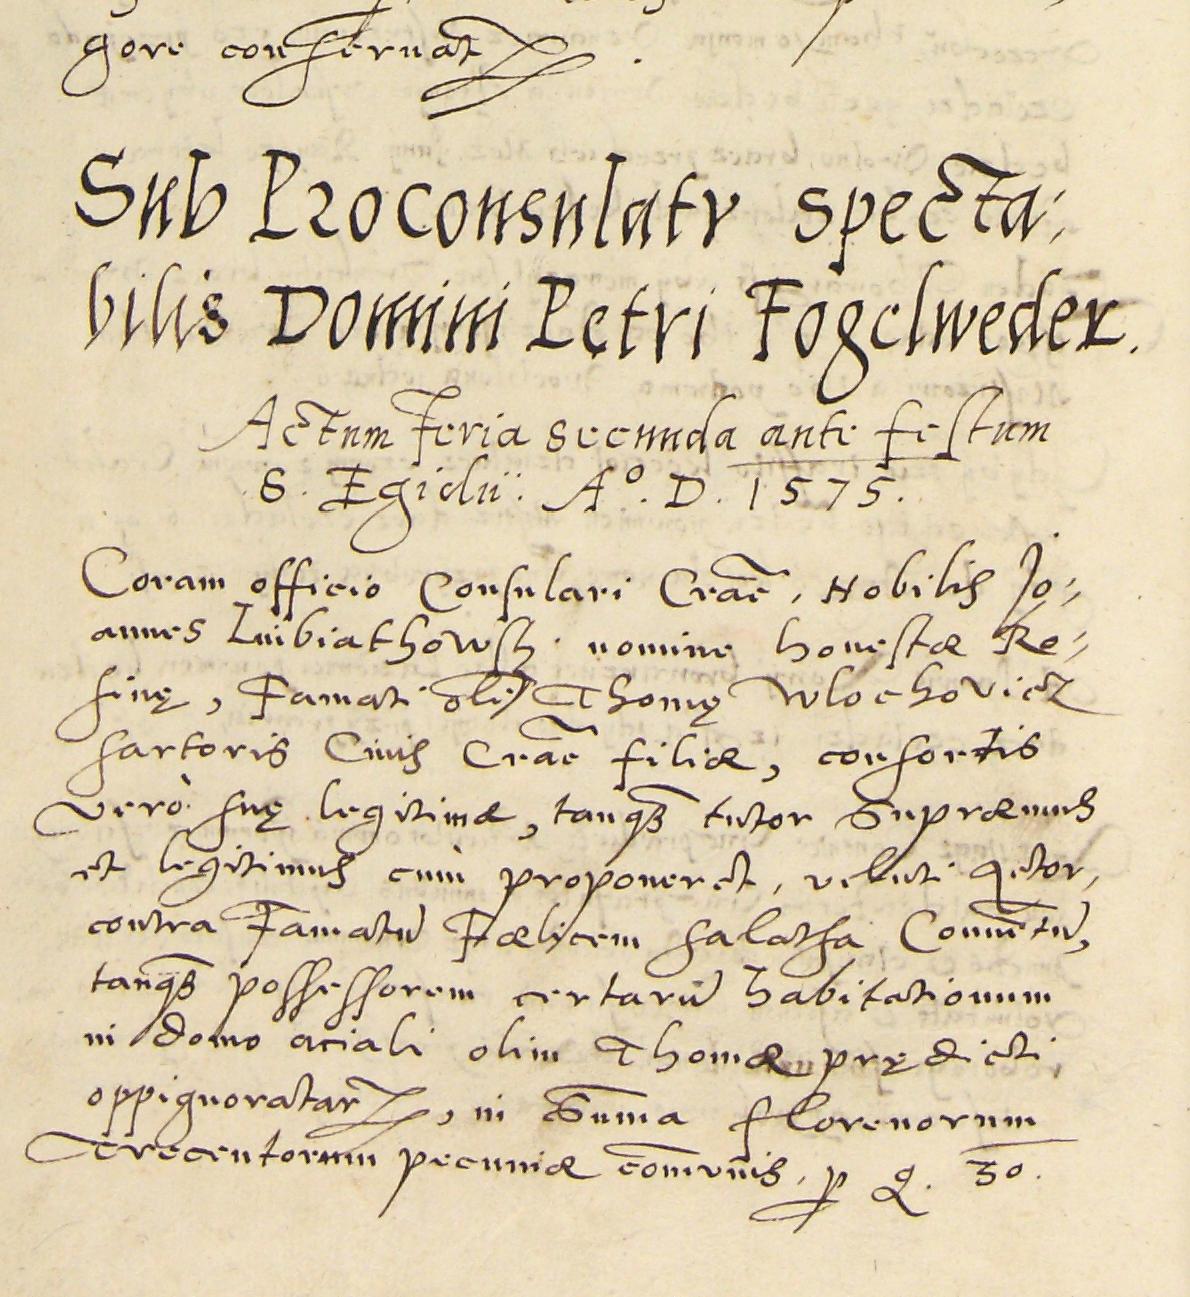 gore conseruat
Sub Proconsulatu specta-
bilis Domini Petri Fogelweder.
Actum Feria secunda ante festum
S. Egidii. Aº. D. 1575.
Coram officio Consulari Craĉ. Nobilis Jo-
annes Lubiathowsky nomine honestæ Re-
sinę, Famati olī Thomę Wlochovicz
sartoris Civis Craĉ filiæ, consortis
verò suę legitimæ, tanqȝ tutor Supræmus
et legitimus cum proponeret, veluti Actor,
contra Famatū Fælicem salatha Conuētū,
tanqȝ possessorem certarū habitationum
in domo aciali olim Thomæ prędicti
oppignoratar, in Sum̄a florenorum
Trecentorum pecuniæ com̄unis, p q. 30.